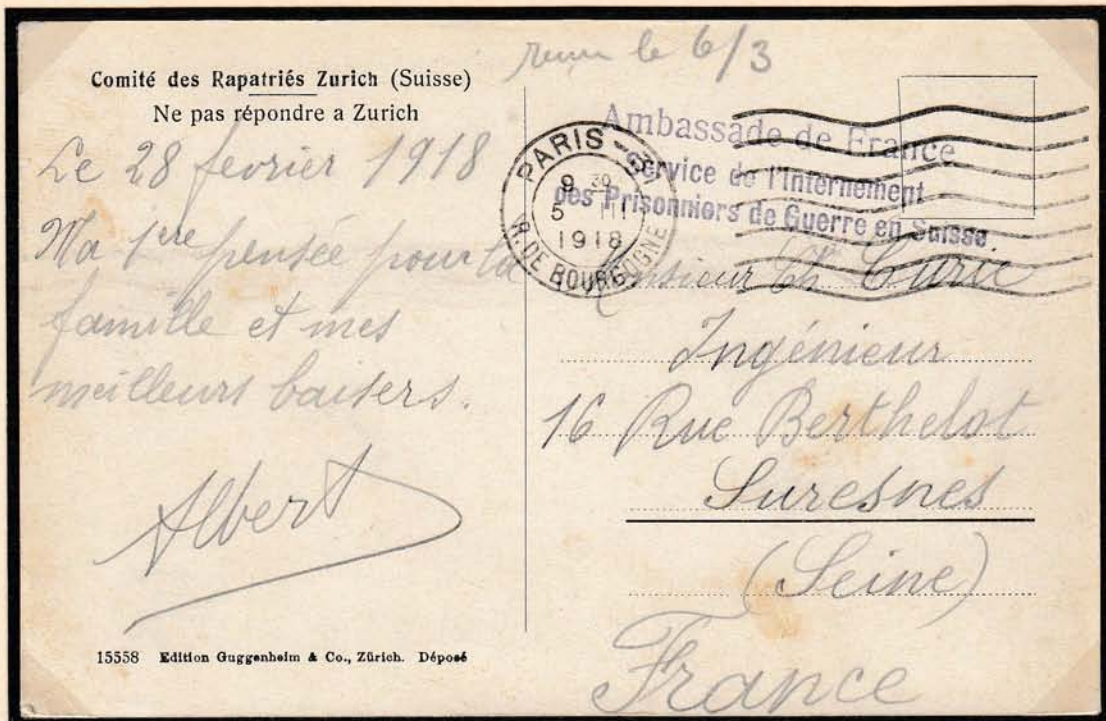 Comité des Rapatriés Zurich (Suisse)
Ne pas répondre a Zurich
Le 28 fevrier 1918
Ma 1ere pensée pour ta
famille et mes
meilleurs baisers.
Albert
15558 Edition Guggenheim & Co., Zürich. Déposé
le 6/3
Ambassade de France
Service de l'Internement
des Prisonniers de Guerre en Suisse
PARIS
9 30
5 III
1918
R. DE BOURGOGNE
Monsieur Ch Curie
Ingénieur
16 Rue Berthelot
Suresnes
(Seine)
France